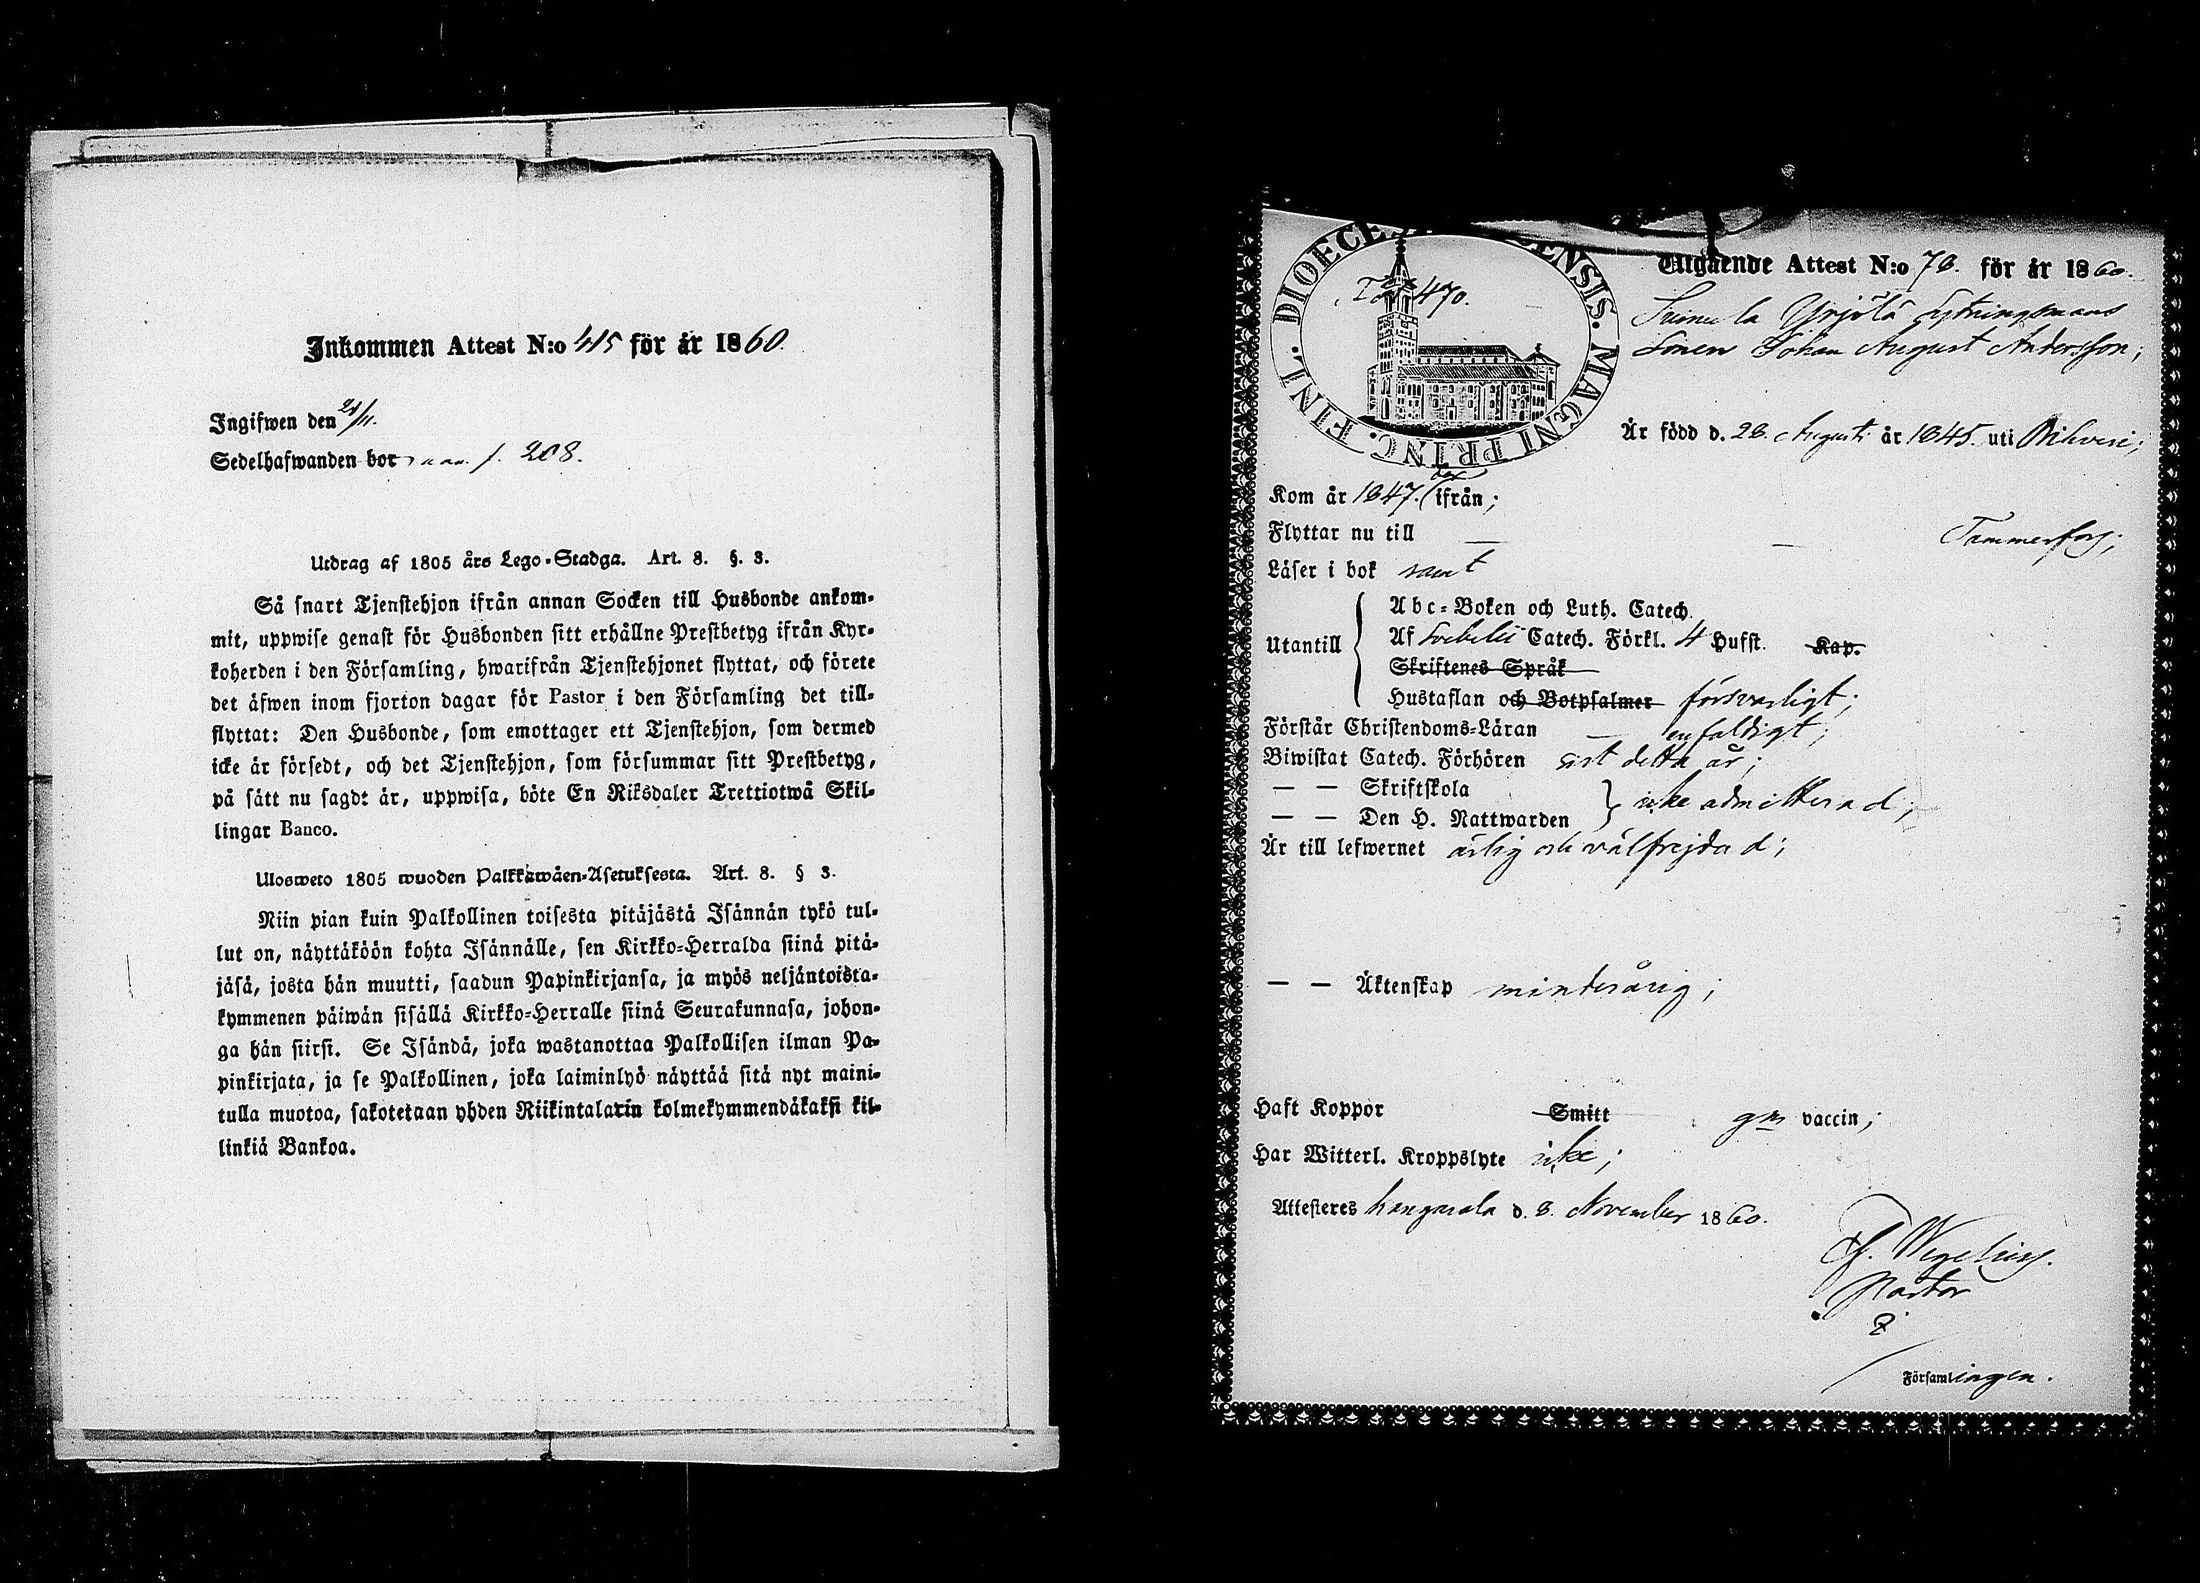 Inkommen Attest N:o 415 för år 1860.
Ingifwen den 21/11.
Sedelhafwanden bor f. 208.
Utdrag af 1805 års Lego-Stadga. Art. 8. §. 3.
Så snart Tjenstehjon ifrån annan Socken till Husbonde ankom-
mit, uppwise genast för Husbonden sitt erhållne Prestbetyg ifrån Kyr-
koherden i den Församling, hwarifrån Tjenstehjonet flyttat, och förete
det äfwen inom fjorton dagar för Pastor i den Församling det till-
flyttat: Den Husbonde, som emottager ett Tjenstehjon, som dermed
icke är försedt, och det Tjenstehjon, som försummar sitt Prestbetyg,
på sätt nu sagdt är, uppwisa, böte En Riksdaler Trettiotwå Skil-
lingar Banco.
Ulosweto 1805 wuoden Palkkawäen-Asetuksesta. Art. 8. § 3.
Niin pian kuin Palkollinen toisesta pitäjästä Isännän tykö tul-
lut on, näyttäköön kohta Isännälle, sen Kirkko-Herralda siinä pitä-
jäsä, josta hän muutti, saadun Papinkirjansa, ja myös neljäntoista-
kymmenen päiwän sisällä Kirkko-Herralle siinä Seurakunnasa, johon-
ga hän siirsi. Se Isändä, joka wastanottaa Palkollisen ilman Pa-
pinkirjata, ja se Palkollinen, joka laiminlyö näyttää sitä nyt maini-
tulla muotoa, sakotetaan yhden Riikintalarin kolmekymmendäkaksi kil-
linkiä Bankoa.
DIOECE ENSIS. MAGNI PRINC. FINL.
470.
Utgående Attest N:o 78. för år 1860.
Suinula Yrjölä Sytningsmans
Sonen Johan August Andersson;
Är född d. 28. Augusti år 1845. uti Orihvesi;
Kom år 1847. ifrån;
Flyttar nu till — — Tammerfors;
Läser i bok samt
Utantill
Abc-Boken och Luth. Catech.
Af Svebelii Catech. Förkl. 4 Hufst. Kap.
Skriftenes Språk
Hustaflan och Botpsalmer försvarligt;
Förstår Christendoms-Läran — enfaldigt;
Biwistat Catech. Förhören sist detta år;
— — Skriftskola
— — Den H. Nattwarden icke admitterad;
Är till lefwernet ärlig och välfrejdad;
— — Äktenskap minderårig;
Haft Koppor Smitt gm vaccin;
Har Witterl. Kroppslyte icke;
Attesteres Kangasala d. 8. November 1860.
Wegelius.
Pastor
Församlingen.